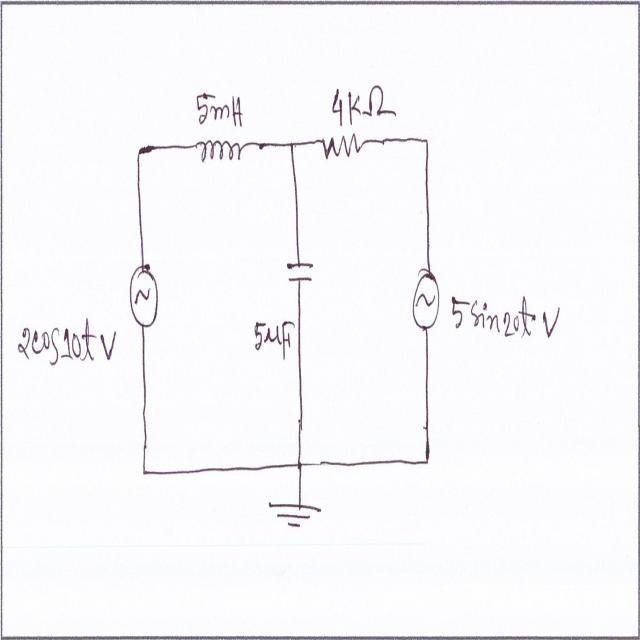 5mH
4KΩ
2cos10t V
5μF
5sin20t V